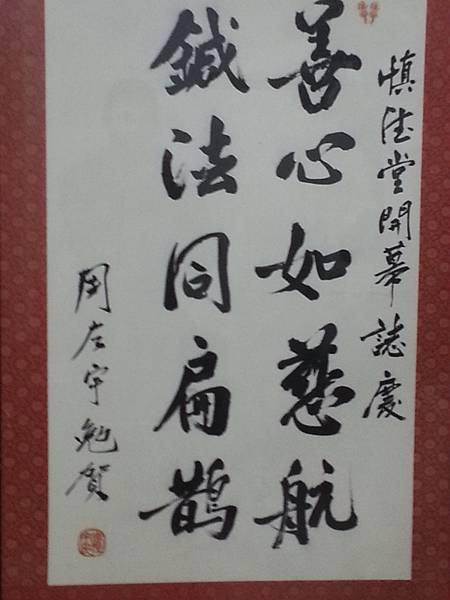 慎德堂開幕誌慶
善心如慈航
鍼法同扁鵲
周左宇勉賀